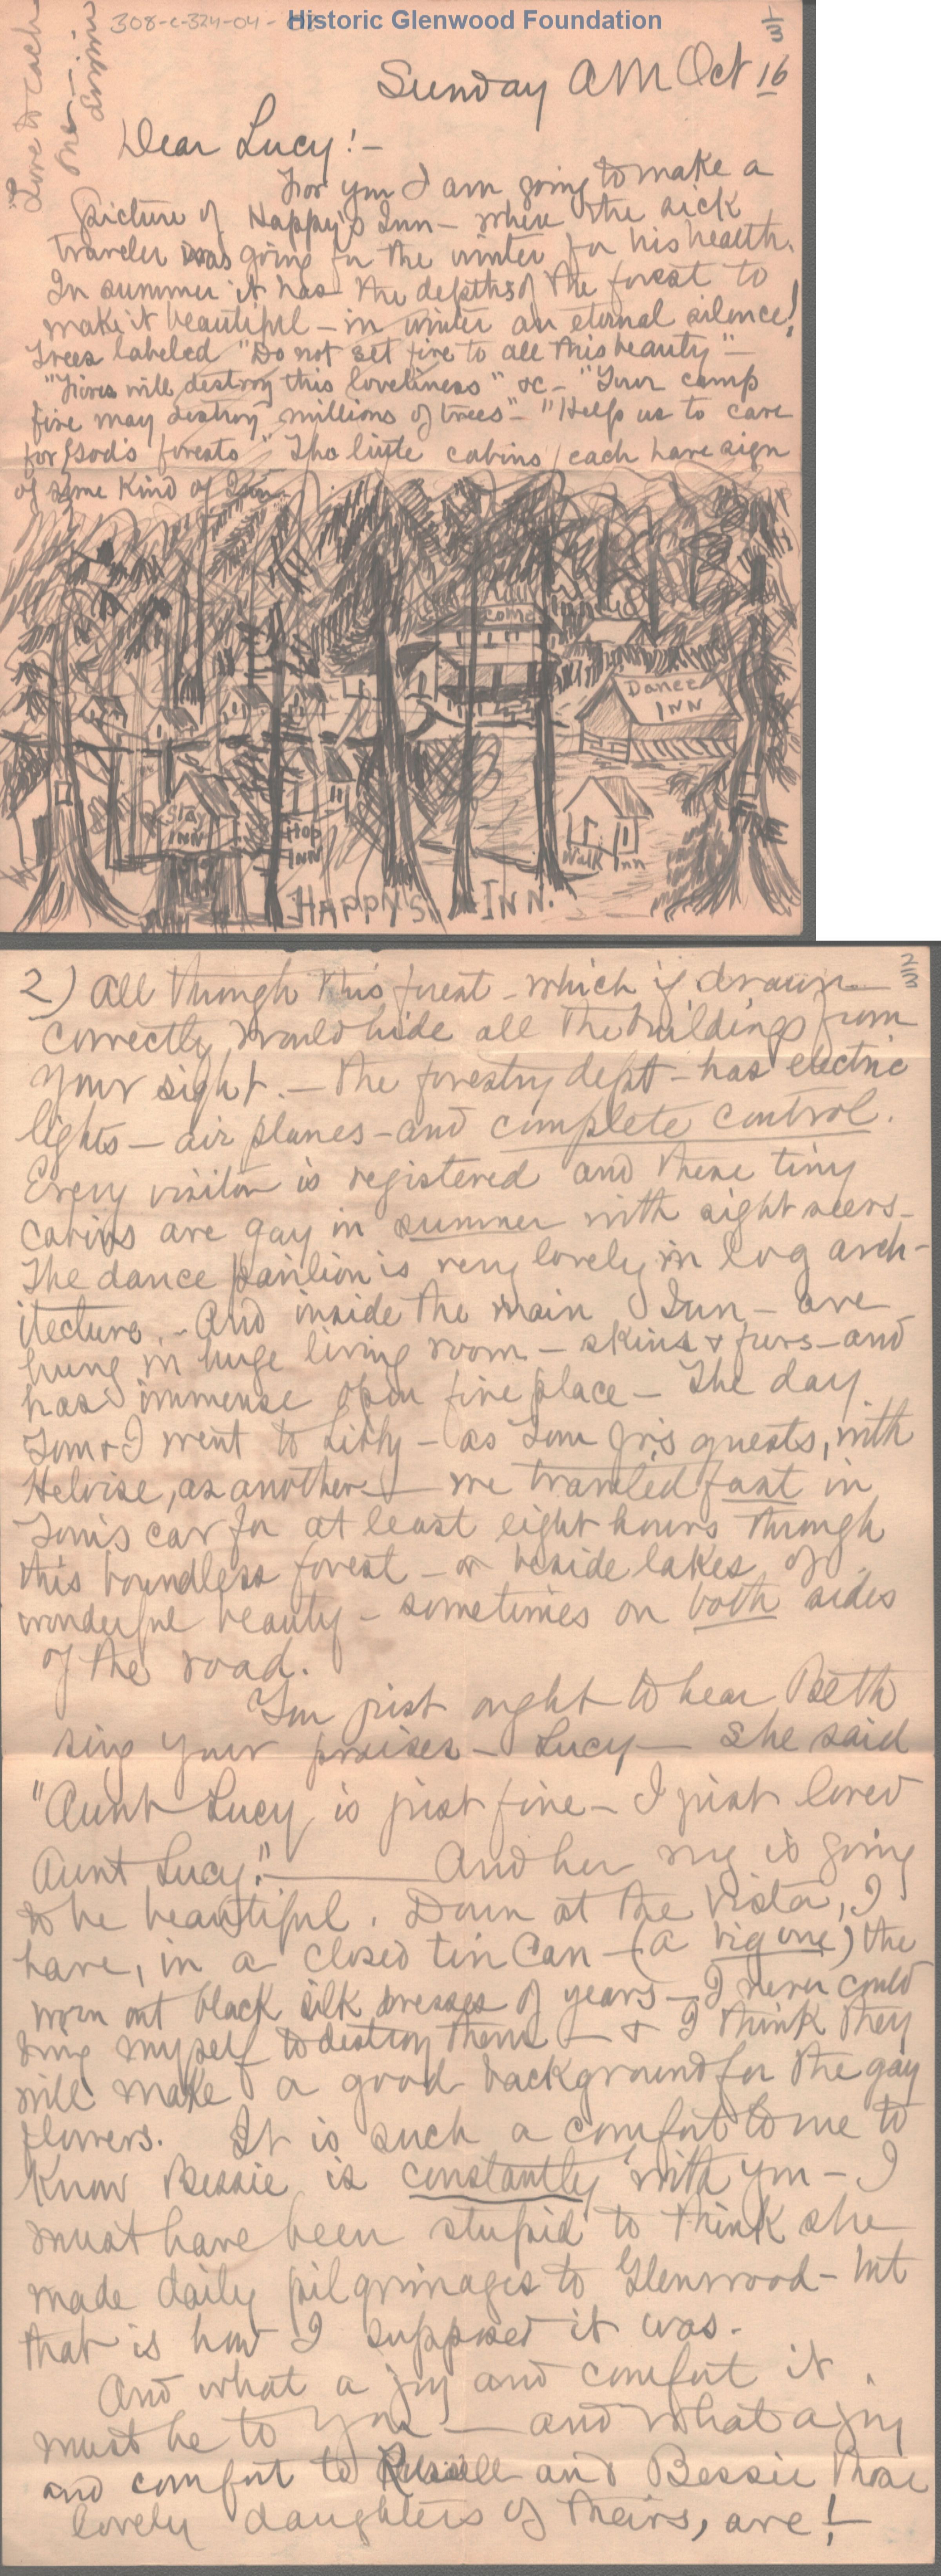 308-C-324-04-
Historic Glenwood Foundation
Love to each
one —
Sunday AM Oct 16
Dear Lucy! –
For you I am going to make a
picture of Happy's Inn – where the sick
traveler was going for the winter for his health.
In summer it has the depths of the forest to
make it beautiful – in winter an eternal silence!
Trees labeled "Do not set fire to all this beauty" –
"Fires will destroy this loveliness" &c – "Your camp
fire may destroy millions of trees" – "Help us to care
for God's forests" The little cabins each have sign
of some kind of Inn.
Come
Inn
Dance
INN
Stay
INN
Hop
INN
Walk Inn
HAPPY'S INN.
2/3
2) All through this forest – which if drawn
correctly would hide all the buildings from
your sight. – the forestry dept – has electric
lights – air planes – and complete control.
Every visitor is registered and these tiny
cabins are gay in summer with sight seers –
The dance pavilion is very lovely in log arch-
itecture. – And inside the main Inn – are
hung in huge living room – skins & furs – and
has immense open fire place – The day
Tom & I went to Libby – as Tom Jr's guests, with
Heloise, as another – we traveled fast in
Tom's car for at least eight hours through
this boundless forest – or beside lakes of
wonderful beauty – sometimes on both sides
of the road.
You just ought to hear Beth
sing your praises – Lucy – She said
"Aunt Lucy is just fine – I just loved
Aunt Lucy." – And her rug is going
to be beautiful. Down at the Vista, I
have, in a closed tin can – (a big one) the
worn out black silk dresses of years – I never could
bring myself to destroy them – & I think they
will make a good background for the gay
flowers. It is such a comfort to me to
know Bessie is constantly with you – I
must have been stupid to think she
made daily pilgrimages to Glenwood – but
that is how I supposed it was.
And what a joy and comfort it
must be to you – and what a joy
and comfort to Russell and Bessie those
lovely daughters of theirs, are!